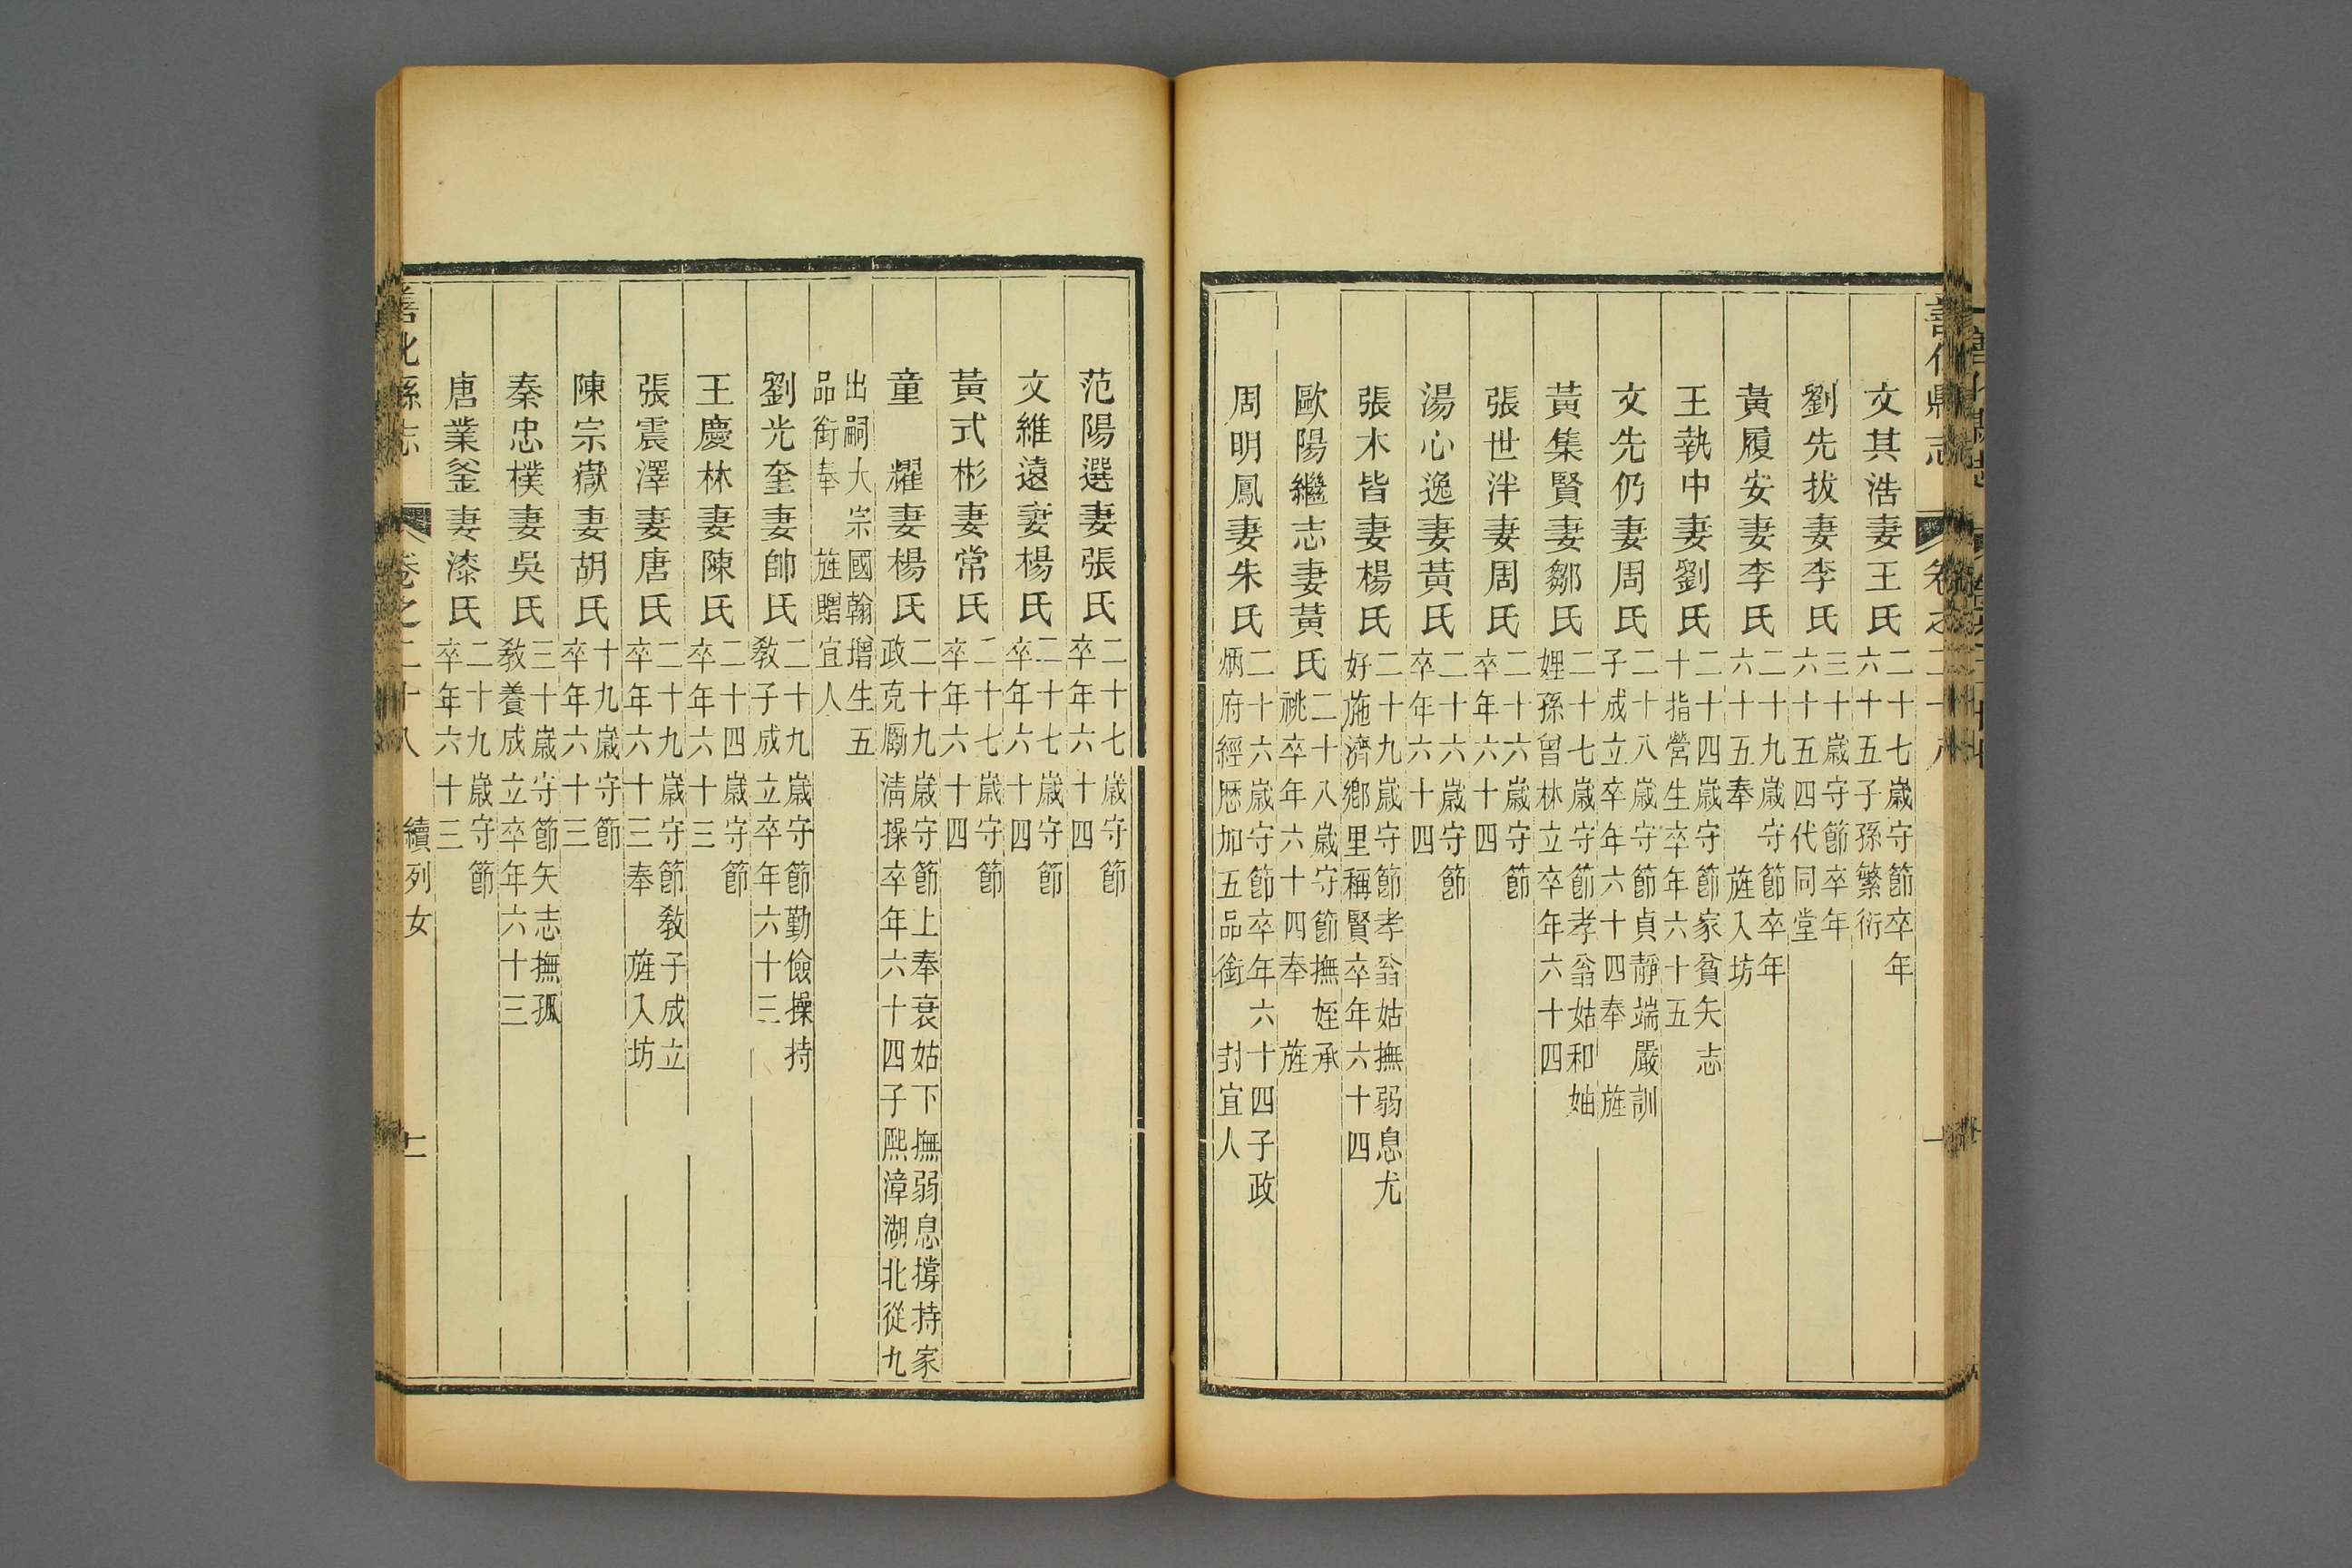 善化縣志
卷之二十八
文其浩妻王氏二十七歲守節卒年
六十五子孫繁衍
劉先拔妻李氏三十歲守節卒年
六十五四代同堂
黃履安妻李氏二十九歲守節卒年
六十五奉 旌入坊
王執中妻劉氏二十四歲守節家貧矢志
十指營生卒年六十五
文先仍妻周氏二十八歲守節貞靜端嚴訓
子成立卒年六十四奉 旌
黃集賢妻鄒氏二十七歲守節孝翁姑和妯
娌孫曾林立卒年六十四
張世泮妻周氏二十六歲守節
卒年六十四
湯心逸妻黃氏二十六歲守節
卒年六十四
張木皆妻楊氏二十九歲守節孝翁姑撫弱息尤
好施濟鄉里稱賢卒年六十四
歐陽繼志妻黃氏二十八歲守節撫姪承
祧卒年六十四奉 旌
周明鳳妻朱氏二十六歲守節卒年六十四子政
炳府經歷加五品銜 封宜人
范陽選妻張氏二十七歲守節
卒年六十四
文維遠妻楊氏二十七歲守節
卒年六十四
黃式彬妻常氏二十七歲守節
卒年六十四
童 耀妻楊氏二十九歲守節上奉衰姑下撫弱息撐持家
政克勵淸操卒年六十四子熙漳湖北從九
出嗣大宗國翰增生五
品銜奉 旌贈宜人
劉光奎妻帥氏二十九歲守節勤儉操持
敎子成立卒年六十三
王慶林妻陳氏二十四歲守節
卒年六十三
張震澤妻唐氏二十九歲守節敎子成立
卒年六十三奉 旌入坊
陳宗嶽妻胡氏十九歲守節
卒年六十三
秦忠樸妻吳氏三十歲守節矢志撫孤
敎養成立卒年六十三
唐業釜妻漆氏二十九歲守節
卒年六十三
善化縣志
卷之二十八 續列女